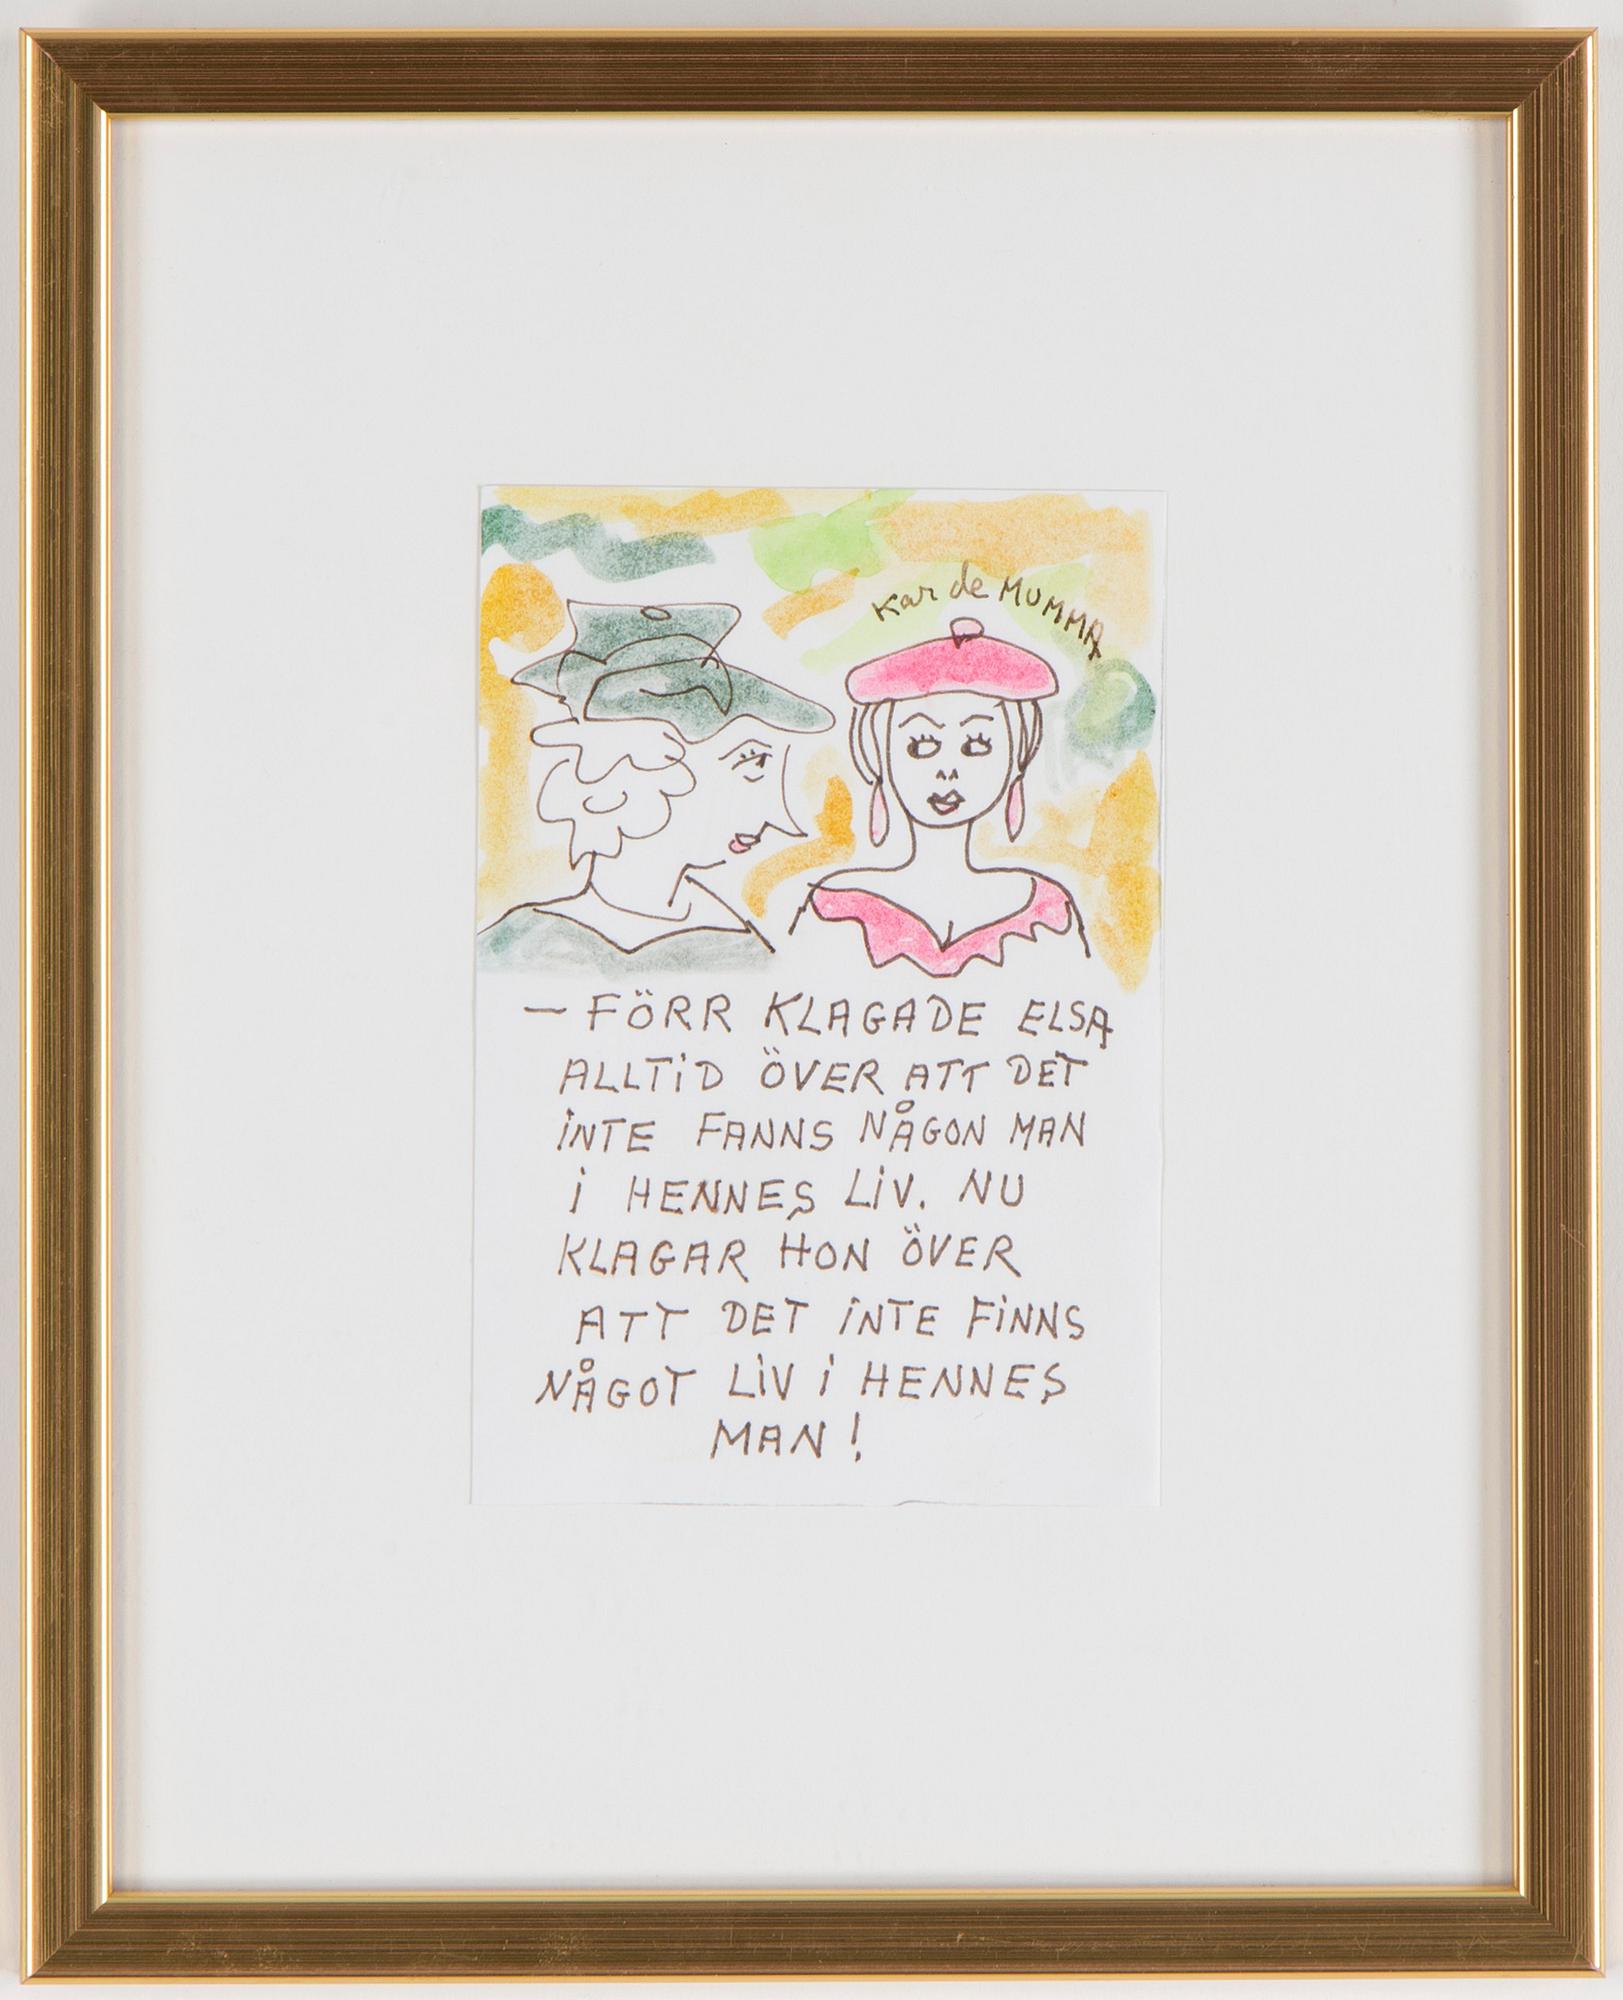 Kar de MUMMA
— FÖRR KLAGADE ELSA
ALLTiD ÖVER ATT DET
iNTE FANNS NÅGON MAN
i HENNES LiV. NU
KLAGAR HON ÖVER
ATT DET iNTE FiNNS
NÅGOT LiV i HENNES
MAN!